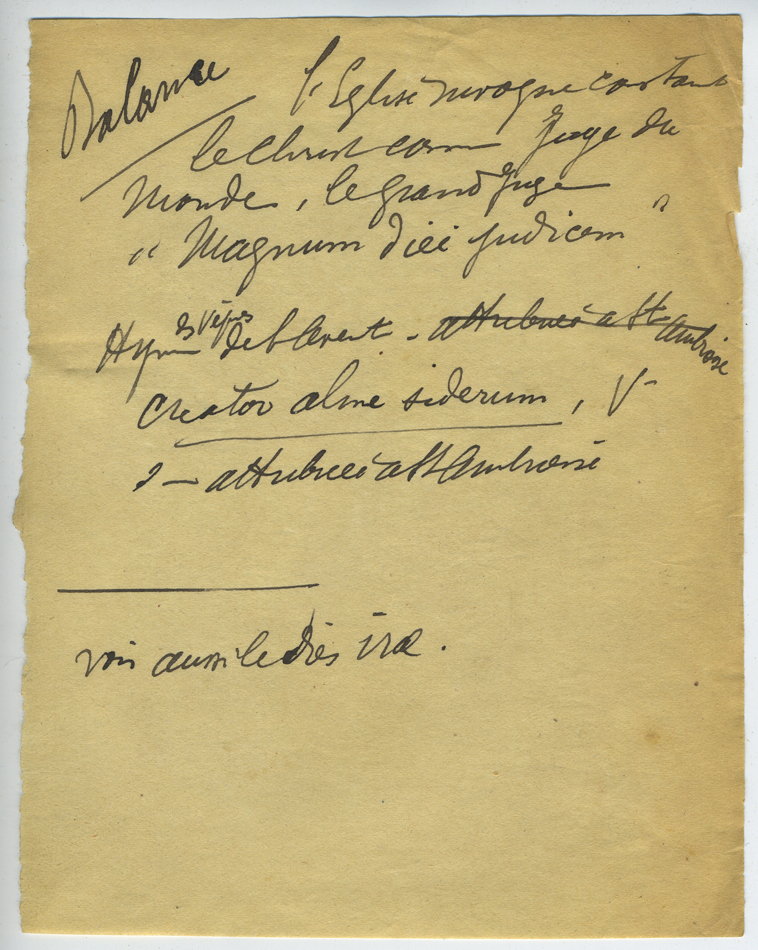 Balance
l'Eglise invoque
le Christ comme Juge du
Monde, le grand Juge
" Magnum diei judicem "
des Vêpres
Hymne de l'Avent - attribuée à St Ambroise
Creator alme siderum, V-
s - attribuée à St Ambroise
voir aussi le dies irae.